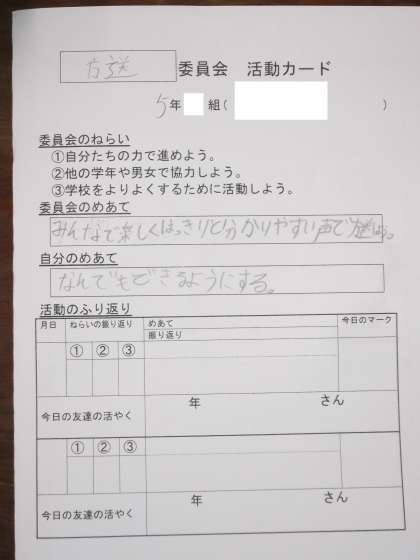 放送 委員会 活動カード
5年 組( )
委員会のねらい
①自分たちの力で進めよう。
②他の学年や男女で協力しよう。
③学校をよりよくするために活動しよう。
委員会のめあて
みんなで楽しくはっきりと分かりやすい声で放送しよう。
自分のめあて
なんでもできるようにする。
活動のふり返り
月日 ねらいの振り返り めあて 今日のマーク
振り返り
① ② ③
今日の友達の活やく 年 さん
① ② ③
今日の友達の活やく 年 さん